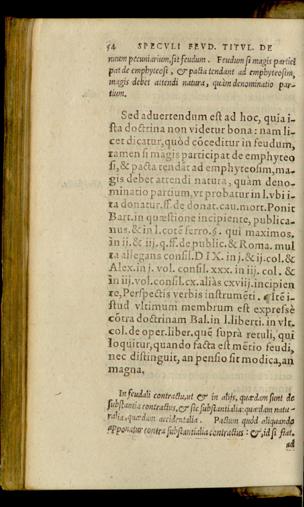 54 SPECVLI FEVD. TITVL. DE
mnum pecuniarium, sit feudum. Feudum si magis partici
pat de emphyteosi, & pacta tendant ad emphyteosim,
magis debet attendi natura, quàm denominatio par-
tium.
Sed aduertendum est ad hoc, quia i-
sta doctrina non videtur bona: nam li-
cet dicatur, quòd cōceditur in feudum,
tamen si magis participat de emphyteo
si, & pacta tendāt ad emphyteosim, ma-
gis debet attendi natura, quàm deno-
minatio partium, vt probatur in l. vbi i-
ta donatur. ff. de donat. cau. mort. Ponit
Bart. in quæstione incipiente, publica-
nus. & in l. cotē ferro. §. qui maximos.
in ij. & iij. q. ff. de public. & Roma. mul
ta allegans consil. D IX. in j. & ij. col. &
Alex. in j. vol. consil. xxx. in iij. col. &
in iij. vol. consil. cx. aliàs cxviij. incipien
te, Perspectis verbis instrumēti. ¶ Itē i-
stud vltimum membrum est expressè
cōtra doctrinam Bal. in l. liberti. in vlt.
col. de oper. liber. quē suprà retuli, qui
loquitur, quando facta est mētio feudi,
nec distinguit, an pensio sit modica, an
magna.
In feudali contractu, ut & in alijs, quædam sunt de
substantia contractus, & sic substantialia: quædam natu-
ralia, quædam accidentalia. Pactum quòd aliquando
apponatur contra substantialia contractus: &, id si fiat,
ad